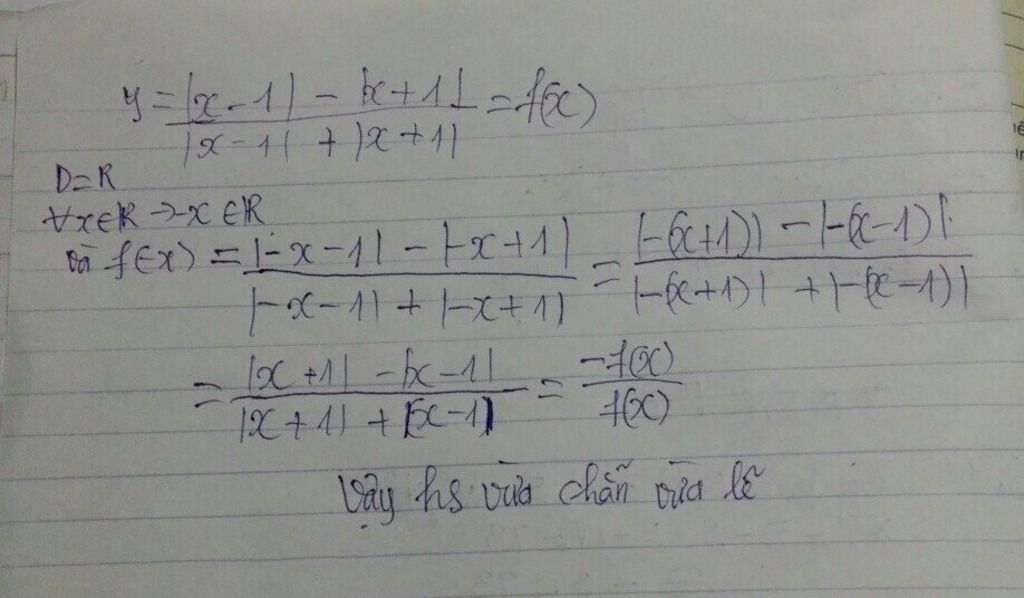 y = |x - 1| - |x + 1| / |x - 1| + |x + 1| = f(x)
D = R
∀x ∈ R → -x ∈ R
và f(-x) = |-x - 1| - |-x + 1| / |-x - 1| + |-x + 1| = |-(x+1)| - |-(x-1)| / |-(x+1)| + |-(x-1)|
= |x + 1| - |x - 1| / |x + 1| + |x - 1| = -f(x) / f(x)
Vậy hs vừa chẵn vừa lẽ